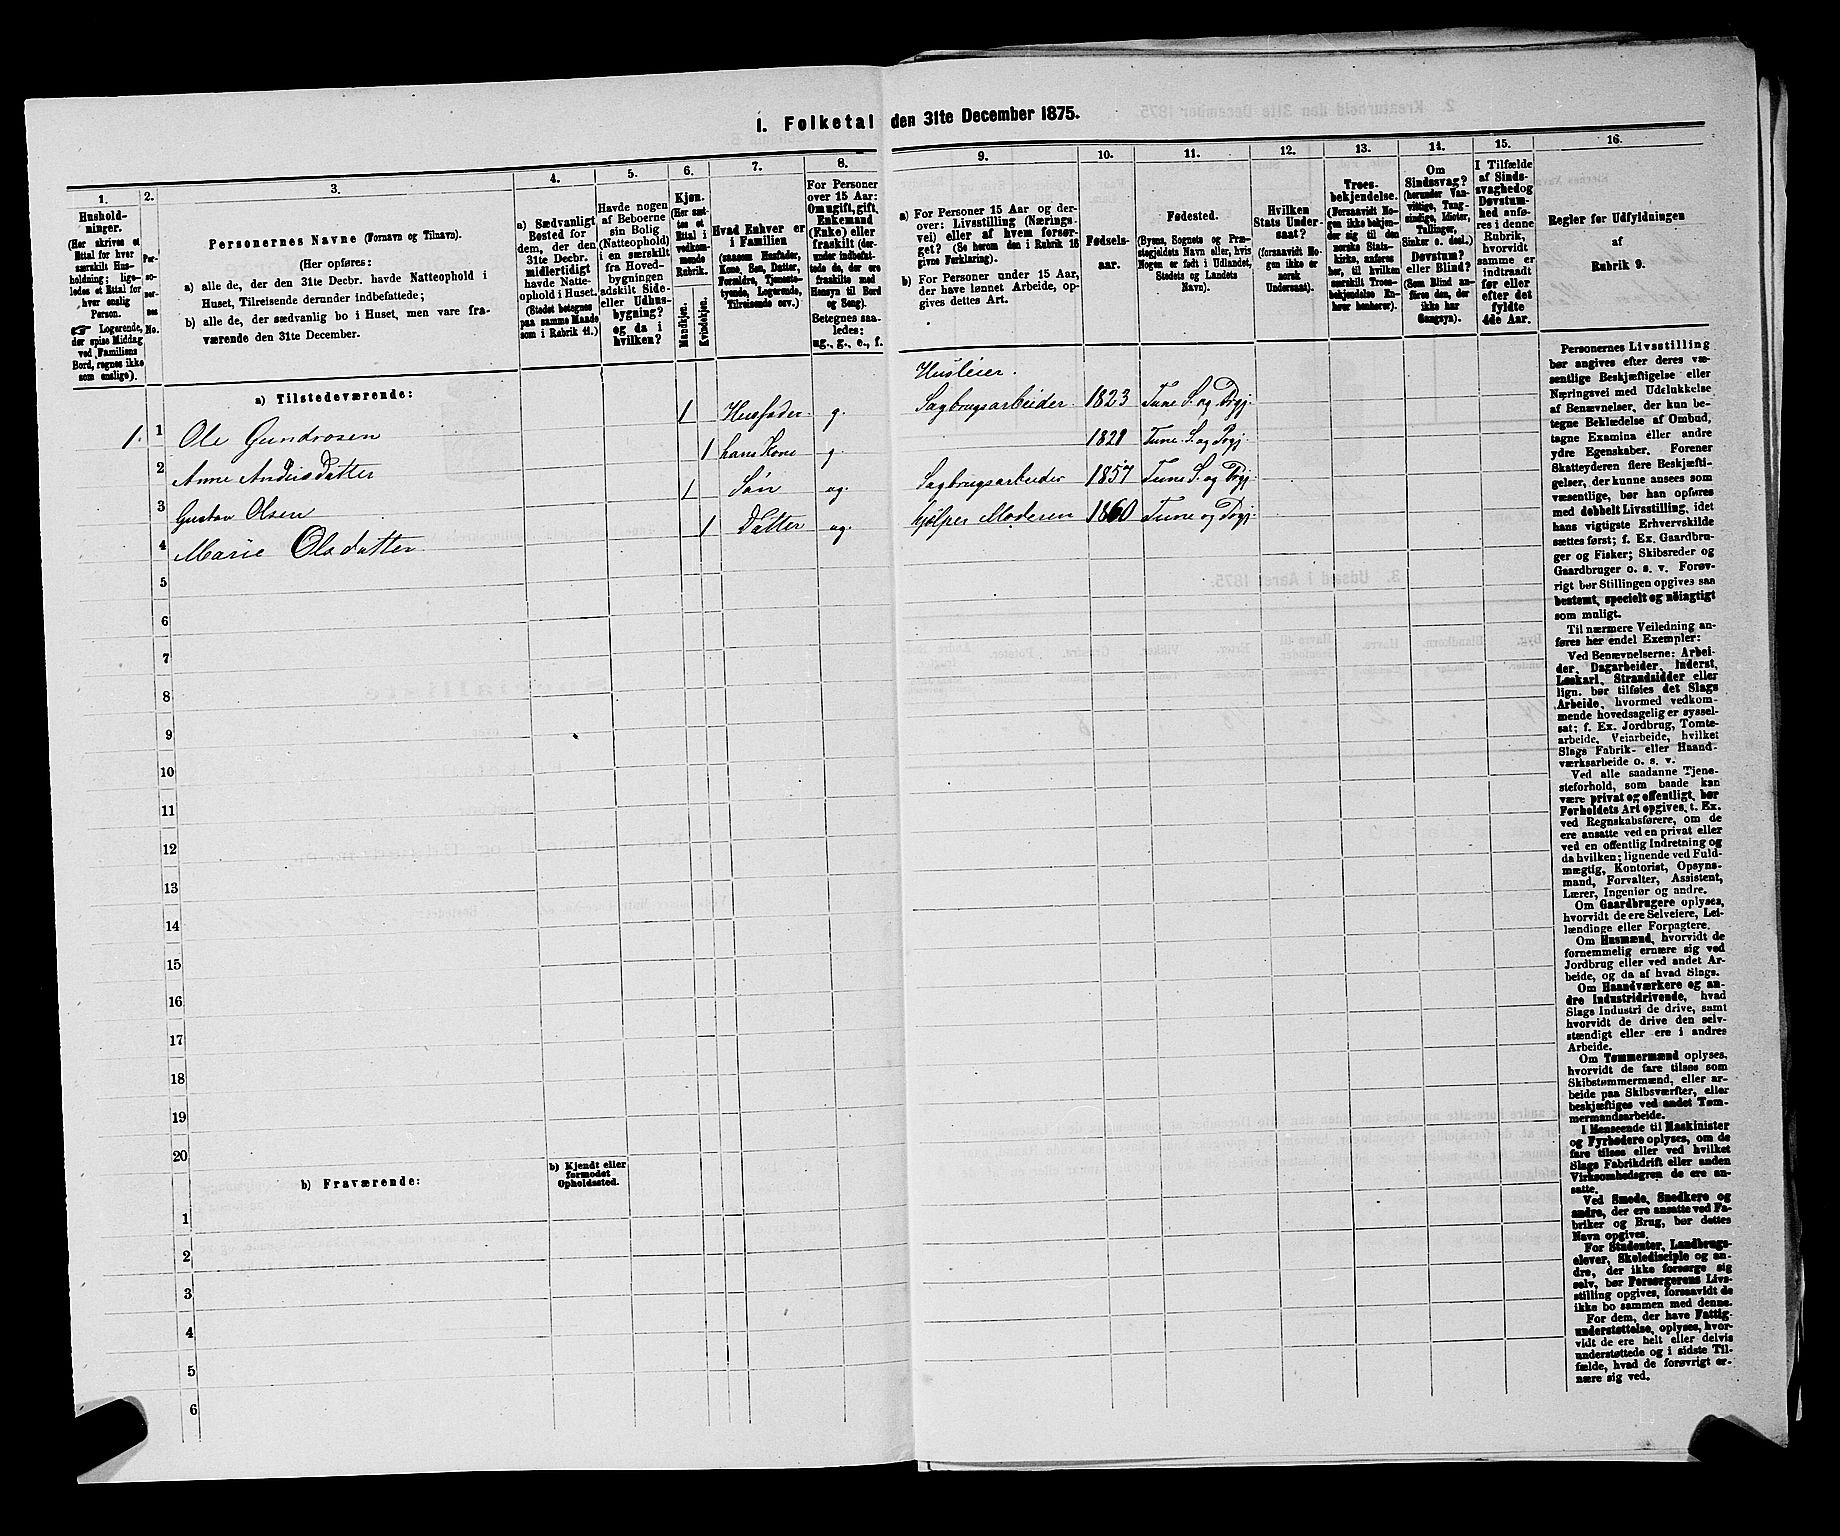 1. Folketal den 31te December 1875.
1.
Hushold-
ninger.
(Her skrives et
Ettal for hver
særskilt Hus-
holdning; lige-
ledes et Ettal for
hver enslig
Person.
☞ Logerende,
der spise Middag
ved Familiens
Bord, regnes ikke
som enslige).
2.
Per-
so-
ner-
nes
No.
3.
Personernes Navne (Fornavn og Tilnavn).
(Her opføres:
a) alle de, der den 31te Decbr. havde Natteophold i
Huset, Tilreisende derunder indbefattede;
b) alle de, der sædvanlig bo i Huset, men vare fra-
værende den 31te December.
4.
a) Sædvanligt
Bosted for
dem, der den
31te Decbr.
midlertidigt
havde Natte-
ophold i Huset.
(Stedet betegnes
paa samme Maade
som i Rubrik 11.)
5.
Havde nogen
af Beboerne
sin Bolig
(Natteophold)
i en særskilt
fra Hoved-
bygningen
adskilt Side-
eller Udhus-
bygning?
og da i
hvilken?
6.
Kjøn.
(Her sæt-
tes et
Ettal i
vedkom-
mende
Rubrik.
Mandkjøn.
Kvindekjøn.
7.
Hvad Enhver er
i Familien
(saasom Husfader,
Kone, Søn, Datter,
Forældre, Tjeneste-
tyende, Logerende,
Tilreisende osv.)
8.
For Personer
over 15 Aar:
Om ugift, gift,
Enkemand
(Enke) eller
fraskilt (der-
under indbefat-
tede de, der ere
fraskilte med
Hensyn til Bord
og Seng).
Betegnes saa-
ledes:
ug., g., e., f.
9.
a) For Personer 15 Aar og der-
over: Livsstilling (Nærings-
vei) eller af hvem forsør-
get? (Se herom den i Rubrik 16
givne Forklaring).
b) For Personer under 15 Aar,
der have lønnet Arbeide, op-
gives dettes Art.
10.
Fødsels-
aar.
11.
Fødested.
(Byens, Sognets og Præ-
stegjeldets Navn eller, hvis
Nogen er født i Udlandet,
Stedets og Landets
Navn).
12.
Hvilken
Stats Under-
saat?
(forsaavidt No-
gen ikke er
norsk
Undersaat).
13.
Troes-
bekjendelse.
(Forsaavidt No-
gen ikke bekjen-
der sig til den
norske Stats-
kirke, anføres
her, til hvilken
særskilt Troes-
bekjendelse En-
hver henhører).
14.
Om
Sindssvag?
(herunder Van-
vittige, Tung-
sindige, Idioter,
Tullinger,
Sinker o. desl.)
Døvstum?
eller Blind?
(Som Blind an-
føres den, der
ikke har
Gangsyn).
15.
I Tilfælde
af Sinds-
svaghed og
Døvstum-
hed anfø-
res i denne
Rubrik,
hvorvidt
samme er
indtraadt
før eller
efter det
fyldte
4de Aar.
16.
Regler for Udfyldningen
af
Rubrik 9.
a) Tilstedeværende:
Husleier.
1. 1 Ole Gundrosen 1 Husfader g. Sagbrugsarbeider 1823 Tune S. og Prgj.
2 Anne Andersdatter 1 hans Kone g. 1821 Tune S. og Prgj.
3 Gustav Olsen 1 Søn ug. Sagbrugsarbeider 1857 Tune S. og Prgj.
4 Marie Olsdatter 1 Datter ug. hjælper Moderen 1860 Tune og Prgj.
5
6
7
8
9
10
11
12
13
14
15
16
17
18
19
20
b) Fraværende:
b) Kjendt eller
formodet
Opholdssted.
1
2
3
4
5
6
Personernes Livsstilling
bør angives efter deres væ-
sentlige Beskjæftigelse eller
Næringsvei med Udelukkelse
af Benævnelser, der kun be-
tegne Beklædelse af Ombud,
tagne Examina eller andre
ydre Egenskaber. Forener
Skatteyderen flere Beskjæfti-
gelser, der kunne ansees som
væsentlige, bør han opføres
med dobbelt Livsstilling, idet
hans vigtigste Erhvervskilde
sættes først; f. Ex. Gaardbru-
ger og Fisker; Skibsreder og
Gaardbruger o. s. v. Forøv-
rigt bør Stillingen opgives saa
bestemt, specielt og nøiagtigt
som muligt.
Til nærmere Veiledning an-
føres her endel Exempler:
Ved Benævnelserne: Arbei-
der, Dagarbeider, Inderst,
Løskarl, Strandsidder eller
lign. bør tilføies det Slags
Arbeide, hvormed vedkom-
mende hovedsagelig er syssel-
sat; f. Ex. Jordbrug, Tomte-
arbeide, Veiarbeide, hvilket
Slags Fabrik- eller Haand-
værksarbeide o. s. v.
Ved alle saadanne Tjene-
steforhold, som baade kan
være privat og offentligt, bør
Forholdets Art opgives, t. Ex.
ved Regnskabsførere, om de
ere ansatte ved en privat eller
ved en offentlig Indretning og
da hvilken; lignende ved Fuld-
mægtig, Kontorist, Opsyns-
mand, Forvalter, Assistent,
Lærer, Ingeniør og andre.
Om Gaardbrugere oplyses,
hvorvidt de ere Selveiere, Lei-
lændinge eller Forpagtere.
Om Husmænd, hvorvidt de
fornemmelig ernære sig ved
Jordbrug eller ved andet Ar-
beide, og da af hvad Slags.
Om Haandværkere og an-
dre Industridrivende, hvad
Slags Industri de drive, samt
hvorvidt de drive den selv-
stændigt eller ere i andres
Arbeide.
Om Tømmermænd oplyses,
hvorvidt de fare tilsøs som
Skibstømmermænd, eller ar-
beide paa Skibsværfter, eller
beskjæftiges ved andet Tøm-
mermandsarbeide.
I Henseende til Maskinister
og Fyrbødere oplyses, om de
fare tilsøs eller ved hvilket
Slags Fabrikdrift eller anden
Virksomhedsgren de ere an-
satte.
Ved Smede, Snedkere og
andre, der ere ansatte ved Fa-
briker og Brug, bør dettes
Navn opgives.
For Studenter, Landbrugs-
elever, Skoledisciple og an-
dre, der ikke forsørge sig
selv, bør Forsørgerens Livs-
stilling opgives, forsaavidt de
ikke bo sammen med denne.
For dem, der have Fattig-
understøttelse, oplyses, hvor-
vidt de ere helt eller delvis
understøttede og i sidste Til-
fælde, hvad de forøvrigt er-
nære sig ved.